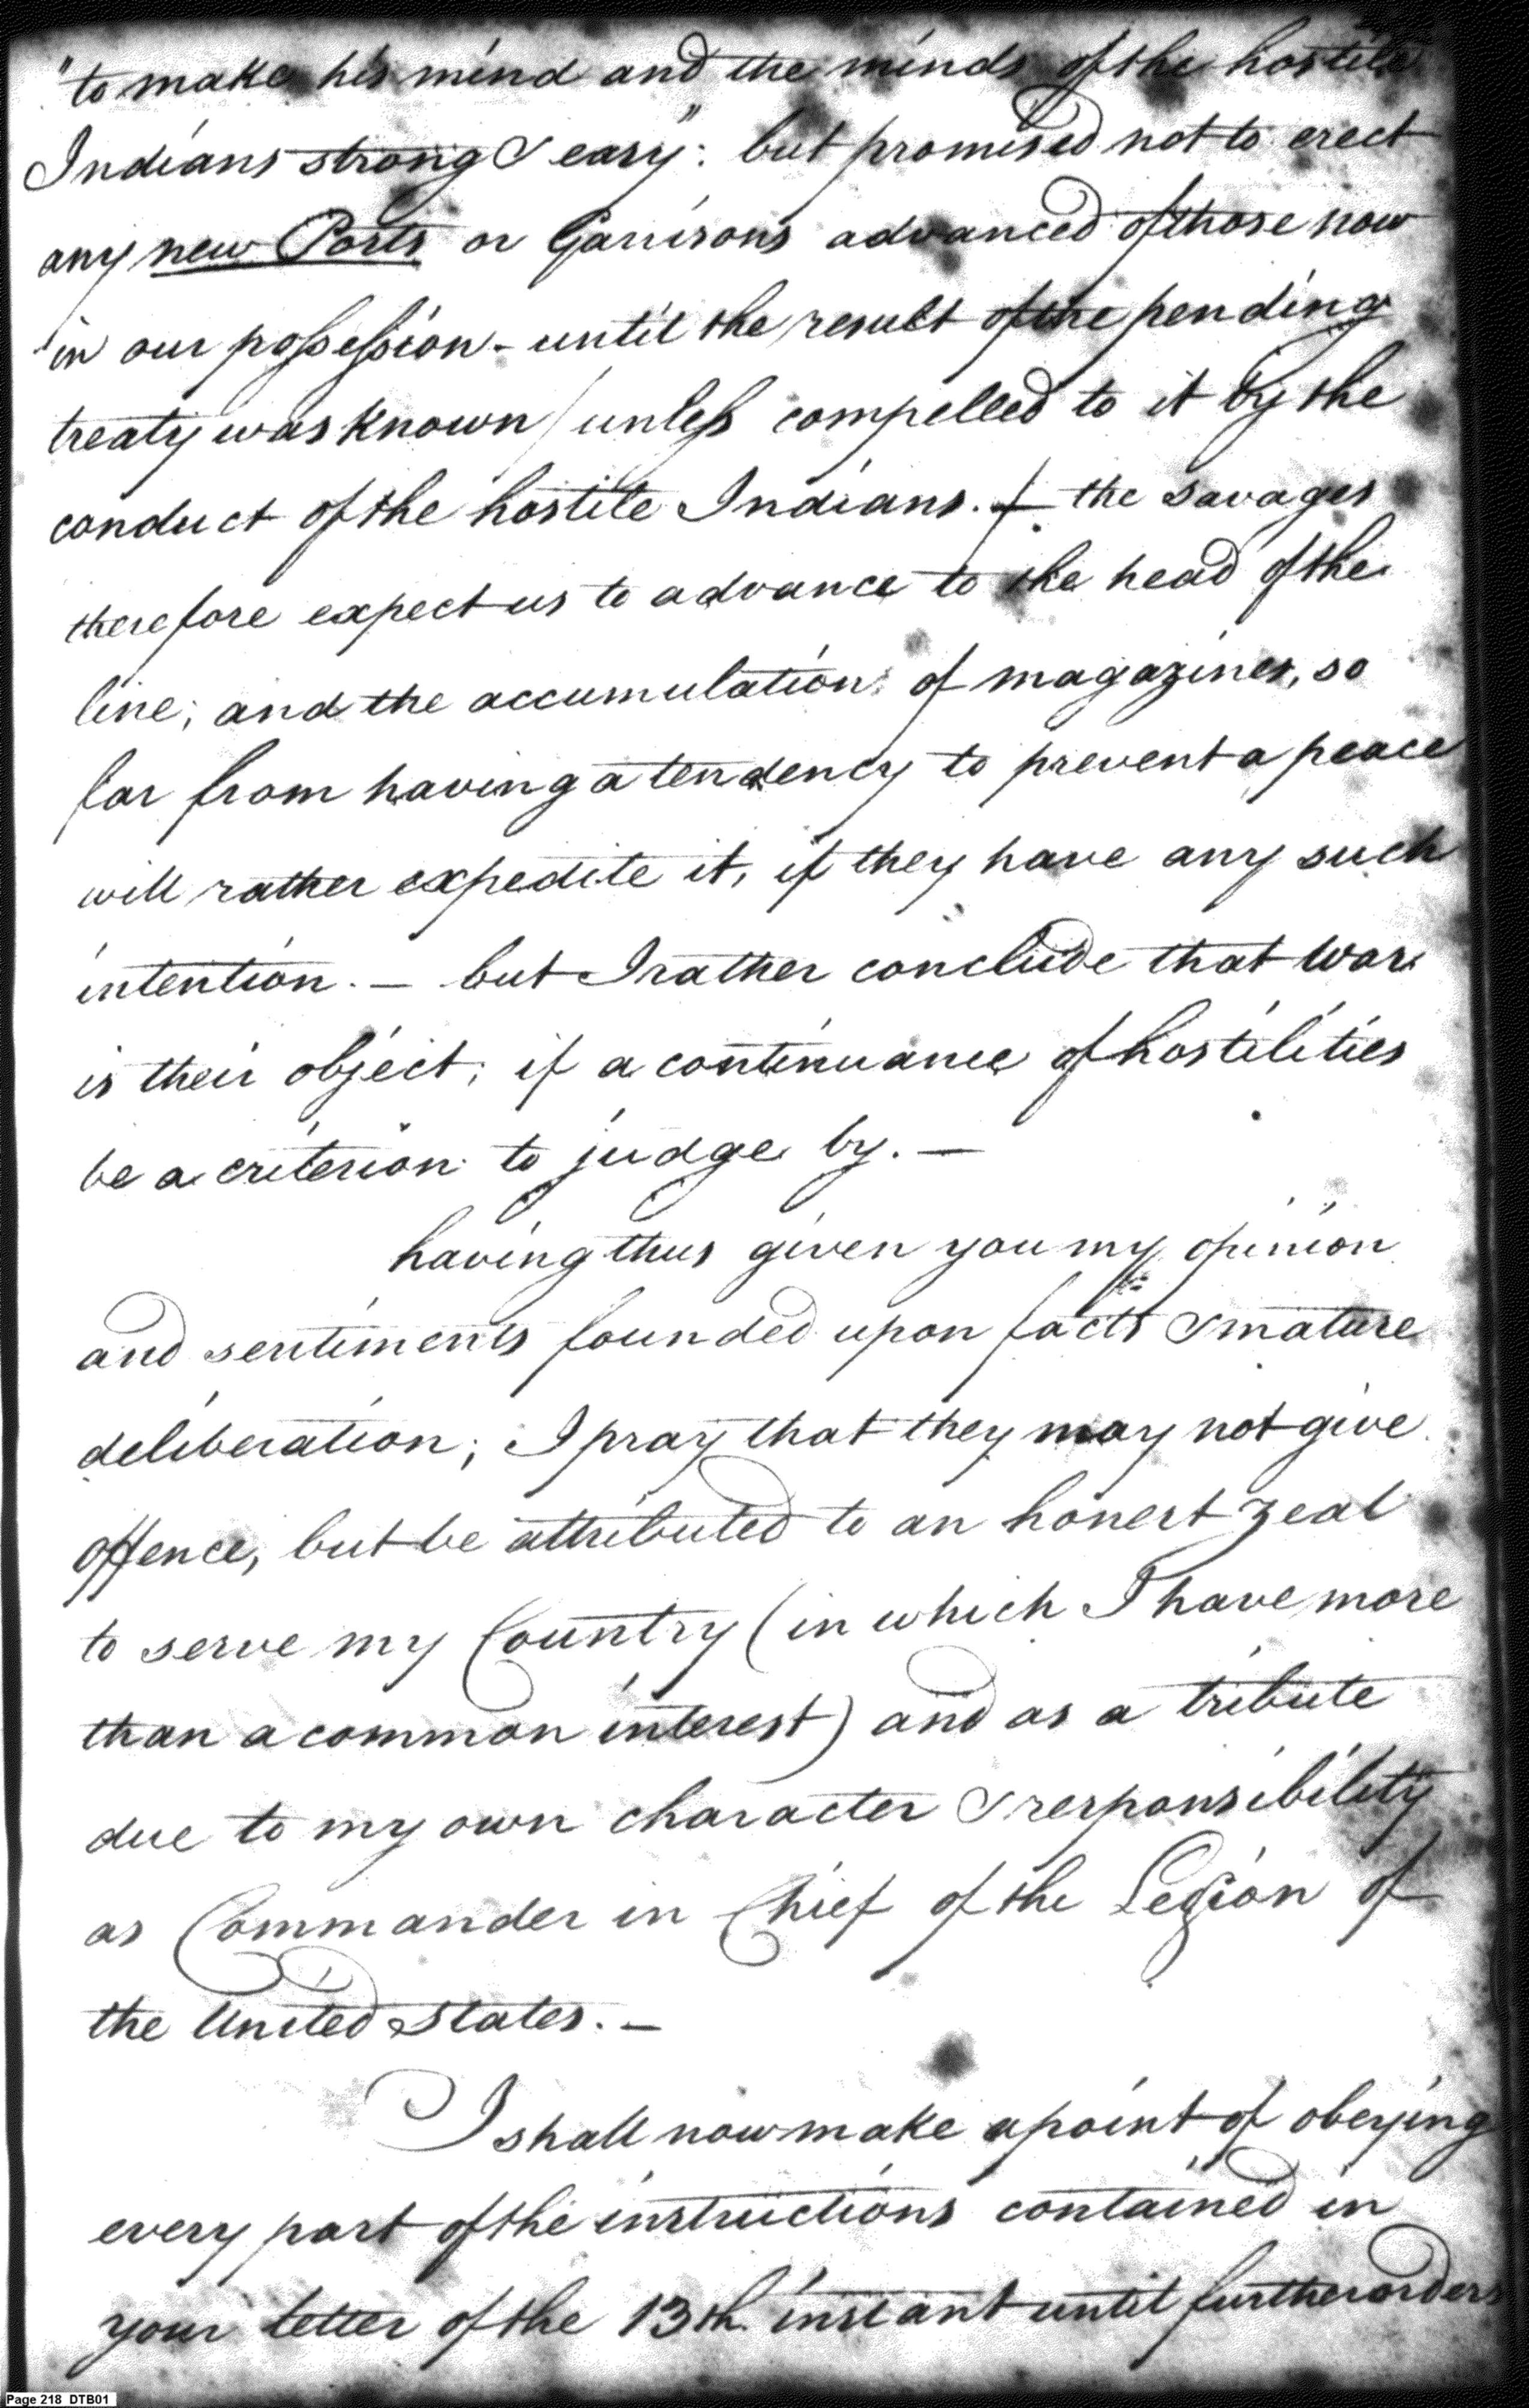 "to make his mind and the minds of the hostile
Indians strong & easy": but promised not to erect
any new Posts or Garrisons advanced of those now
in our possession - until the result of the pending
treaty was known / unless compelled to it by the
conduct of the hostile Indians. / the savages
therefore expect us to advance to the head of the
line; and the accumulation of magazines, so
far from having a tendency to prevent a peace
will rather expedite it, if they have any such
intention. — but I rather conclude that War
is their object; if a continuance of hostilities
be a criterion to judge by. —
having thus given you my opinion
and sentiments founded upon facts & mature
deliberation; I pray that they may not give
offence, but be attributed to an honest zeal
to serve my Country (in which I have more
than a common interest) and as a tribute
due to my own character & responsibility
as Commander in Chief of the Legion of
the United States. —
I shall now make a point of obeying
every part of the instructions contained in
your letter of the 13th. instant until further orders
Page 218 DTB01